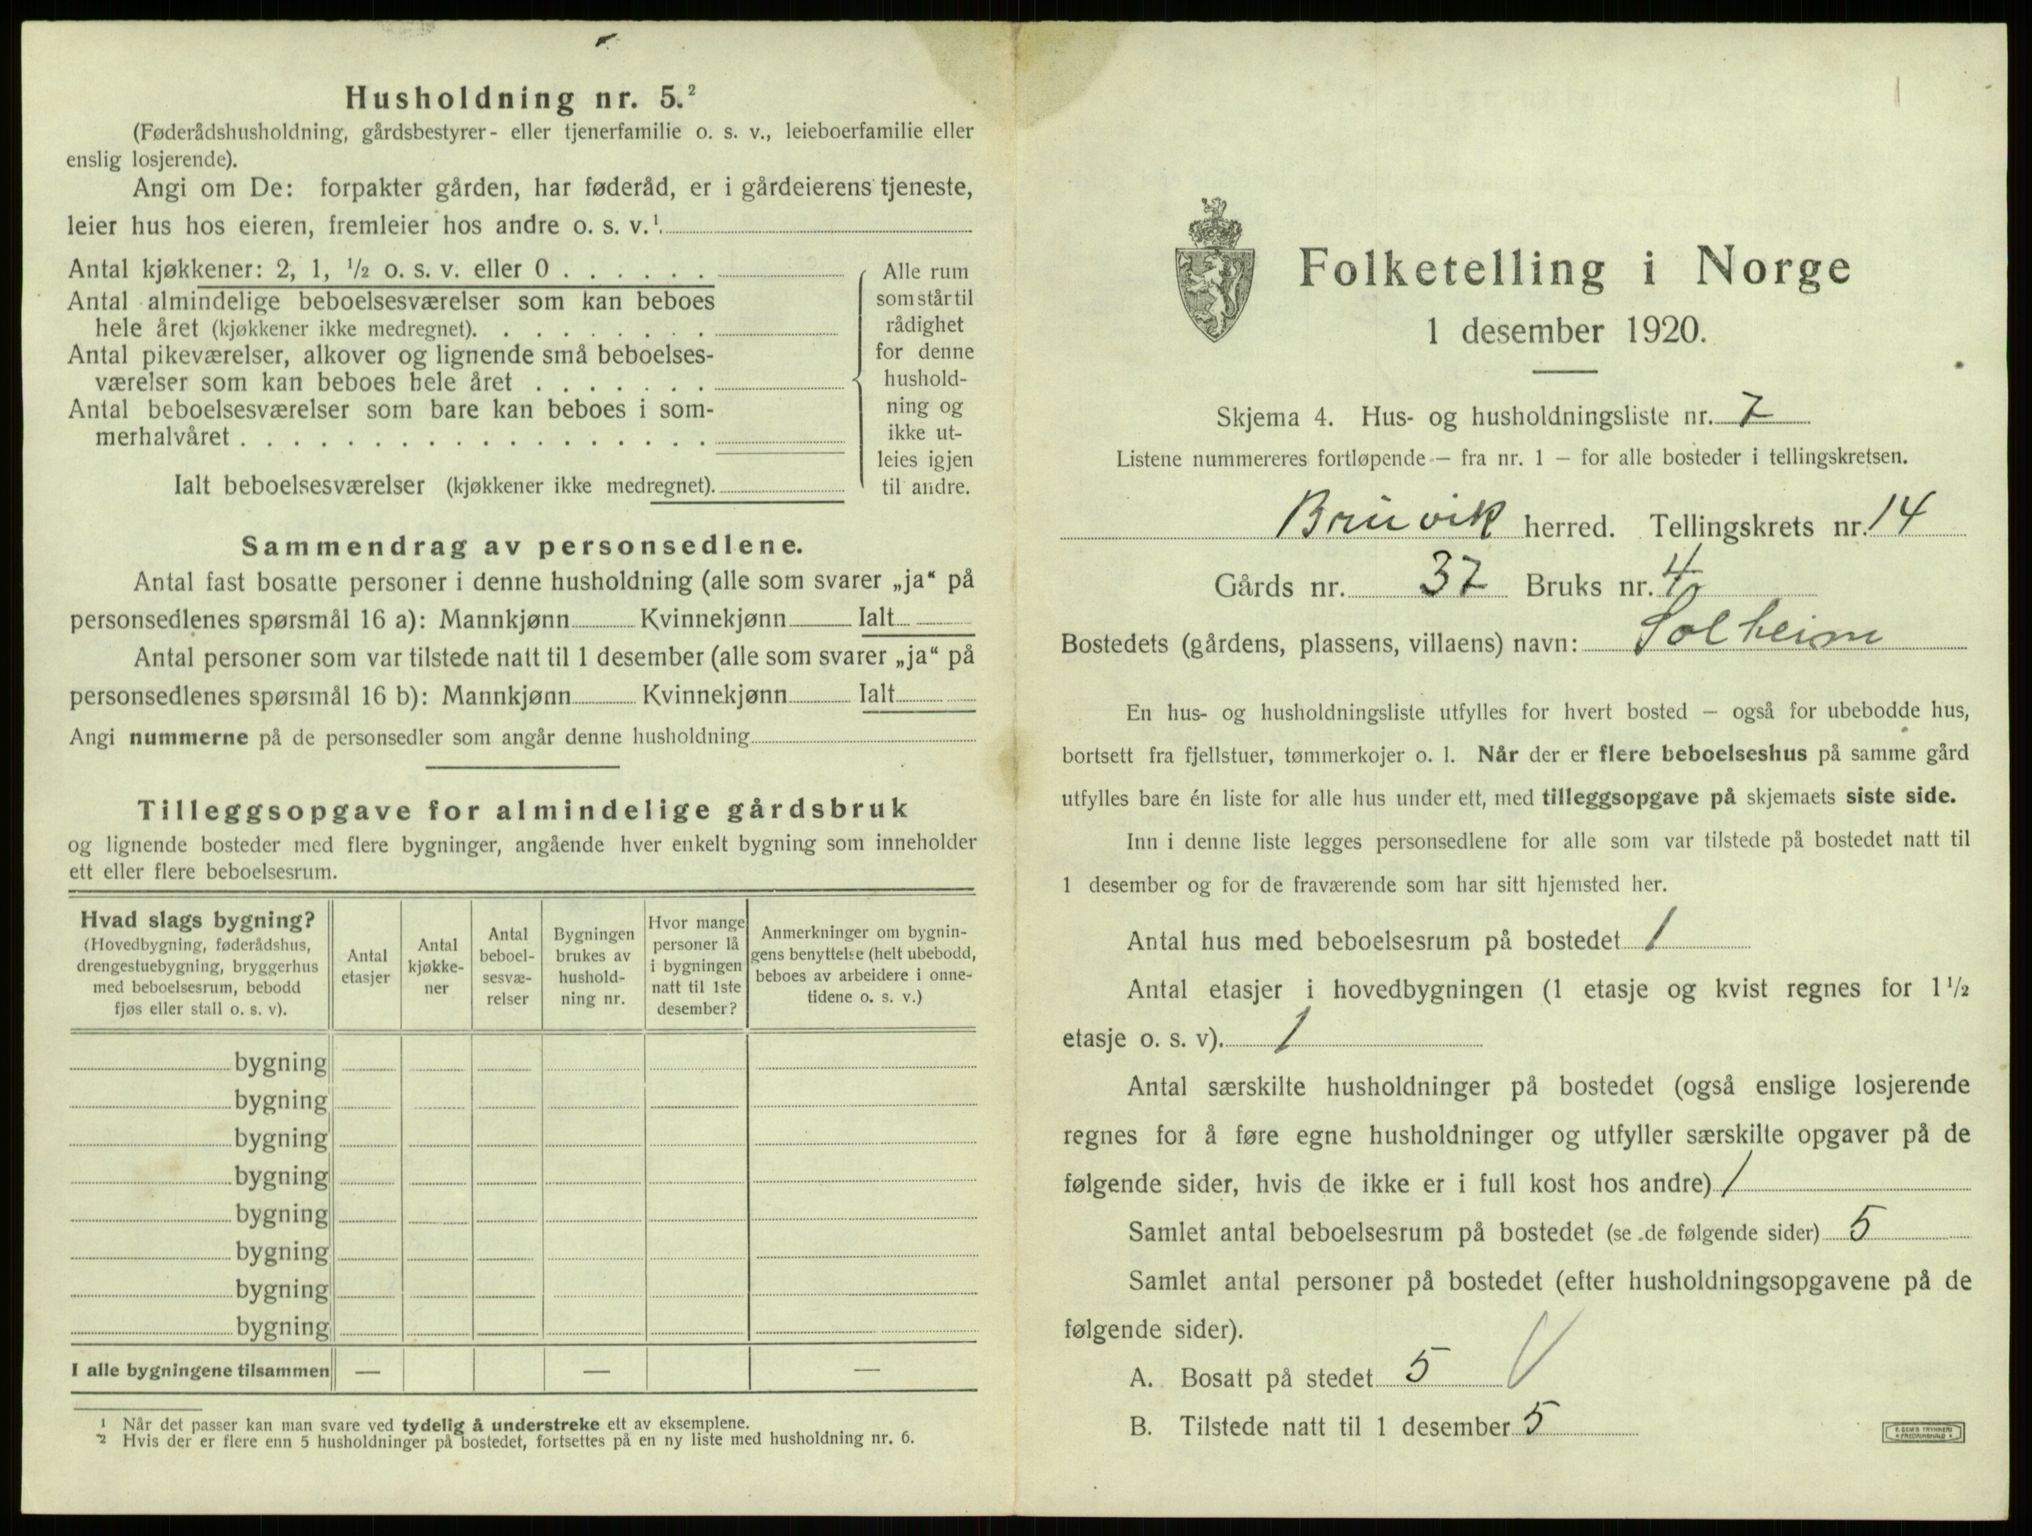 Husholdning nr. 5.²
(Føderådshusholdning, gårdsbestyrer- eller tjenerfamilie o. s. v., leieboerfamilie eller
enslig losjerende).
Angi om De: forpakter gården, har føderåd, er i gårdeierens tjeneste,
leier hus hos eieren, fremleier hos andre o. s. v.¹
Antal kjøkkener: 2, 1, ½ o. s. v. eller 0 . . . . . .
Antal almindelige beboelsesværelser som kan beboes
hele året (kjøkkener ikke medregnet). . . . . . . . .
Antal pikeværelser, alkover og lignende små beboelses-
værelser som kan beboes hele året . . . . . . .
Antal beboelsesværelser som bare kan beboes i som-
merhalvåret . . . . . . . . . . . . . . . . . .
Ialt beboelsesværelser (kjøkkener ikke medregnet).
Alle rum
som står til
rådighet
for denne
hushold-
ning og
ikke ut-
leies igjen
til andre.
Sammendrag av personsedlene.
Antal fast bosatte personer i denne husholdning (alle som svarer „ja“ på
personsedlenes spørsmål 16 a): Mannkjønn Kvinnekjønn Ialt
Antal personer som var tilstede natt til 1 desember (alle som svarer „ja“ på
personsedlenes spørsmål 16 b): Mannkjønn Kvinnekjønn Ialt
Angi nummerne på de personsedler som angår denne husholdning
Tilleggsopgave for almindelige gårdsbruk
og lignende bosteder med flere bygninger, angående hver enkelt bygning som inneholder
ett eller flere beboelsesrum.
Hvad slags bygning?
(Hovedbygning, føderådshus,
drengestuebygning, bryggerhus
med beboelsesrum, bebodd
fjøs eller stall o. s. v).
Antal
etasjer
Antal
kjøkke-
ner
Antal
beboel-
sesvæ-
relser
Bygningen
brukes av
hushold-
ning nr.
Hvor mange
personer lå
i bygningen
natt til 1ste
desember?
Anmerkninger om bygnin-
gens benyttelse (helt ubebodd,
beboes av arbeidere i onne-
tidene o. s. v.)
bygning
bygning
bygning
bygning
bygning
bygning
bygning
bygning
I alle bygningene tilsammen — — —
¹ Når det passer kan man svare ved tydelig å understreke ett av eksemplene.
² Hvis der er flere enn 5 husholdninger på bostedet, fortsettes på en ny liste med husholdning nr. 6.
Folketelling i Norge
1 desember 1920.
Skjema 4. Hus- og husholdningsliste nr. 7
Listene nummereres fortløpende — fra nr. 1 — for alle bosteder i tellingskretsen.
Bruvik herred. Tellingskrets nr. 14
Gårds nr. 37 Bruks nr. 4
Bostedets (gårdens, plassens, villaens) navn: Solheim
En hus- og husholdningsliste utfylles for hvert bosted — også for ubebodde hus,
bortsett fra fjellstuer, tømmerkojer o. l. Når der er flere beboelseshus på samme gård
utfylles bare én liste for alle hus under ett, med tilleggsopgave på skjemaets siste side.
Inn i denne liste legges personsedlene for alle som var tilstede på bostedet natt til
1 desember og for de fraværende som har sitt hjemsted her.
Antal hus med beboelsesrum på bostedet 1
Antal etasjer i hovedbygningen (1 etasje og kvist regnes for 1½
etasje o. s. v). 1
Antal særskilte husholdninger på bostedet (også enslige losjerende
regnes for å føre egne husholdninger og utfyller særskilte opgaver på de
følgende sider, hvis de ikke er i full kost hos andre) 1
Samlet antal beboelsesrum på bostedet (se de følgende sider) 5
Samlet antal personer på bostedet (efter husholdningsopgavene på de
følgende sider).
A. Bosatt på stedet 5
B. Tilstede natt til 1 desember 5